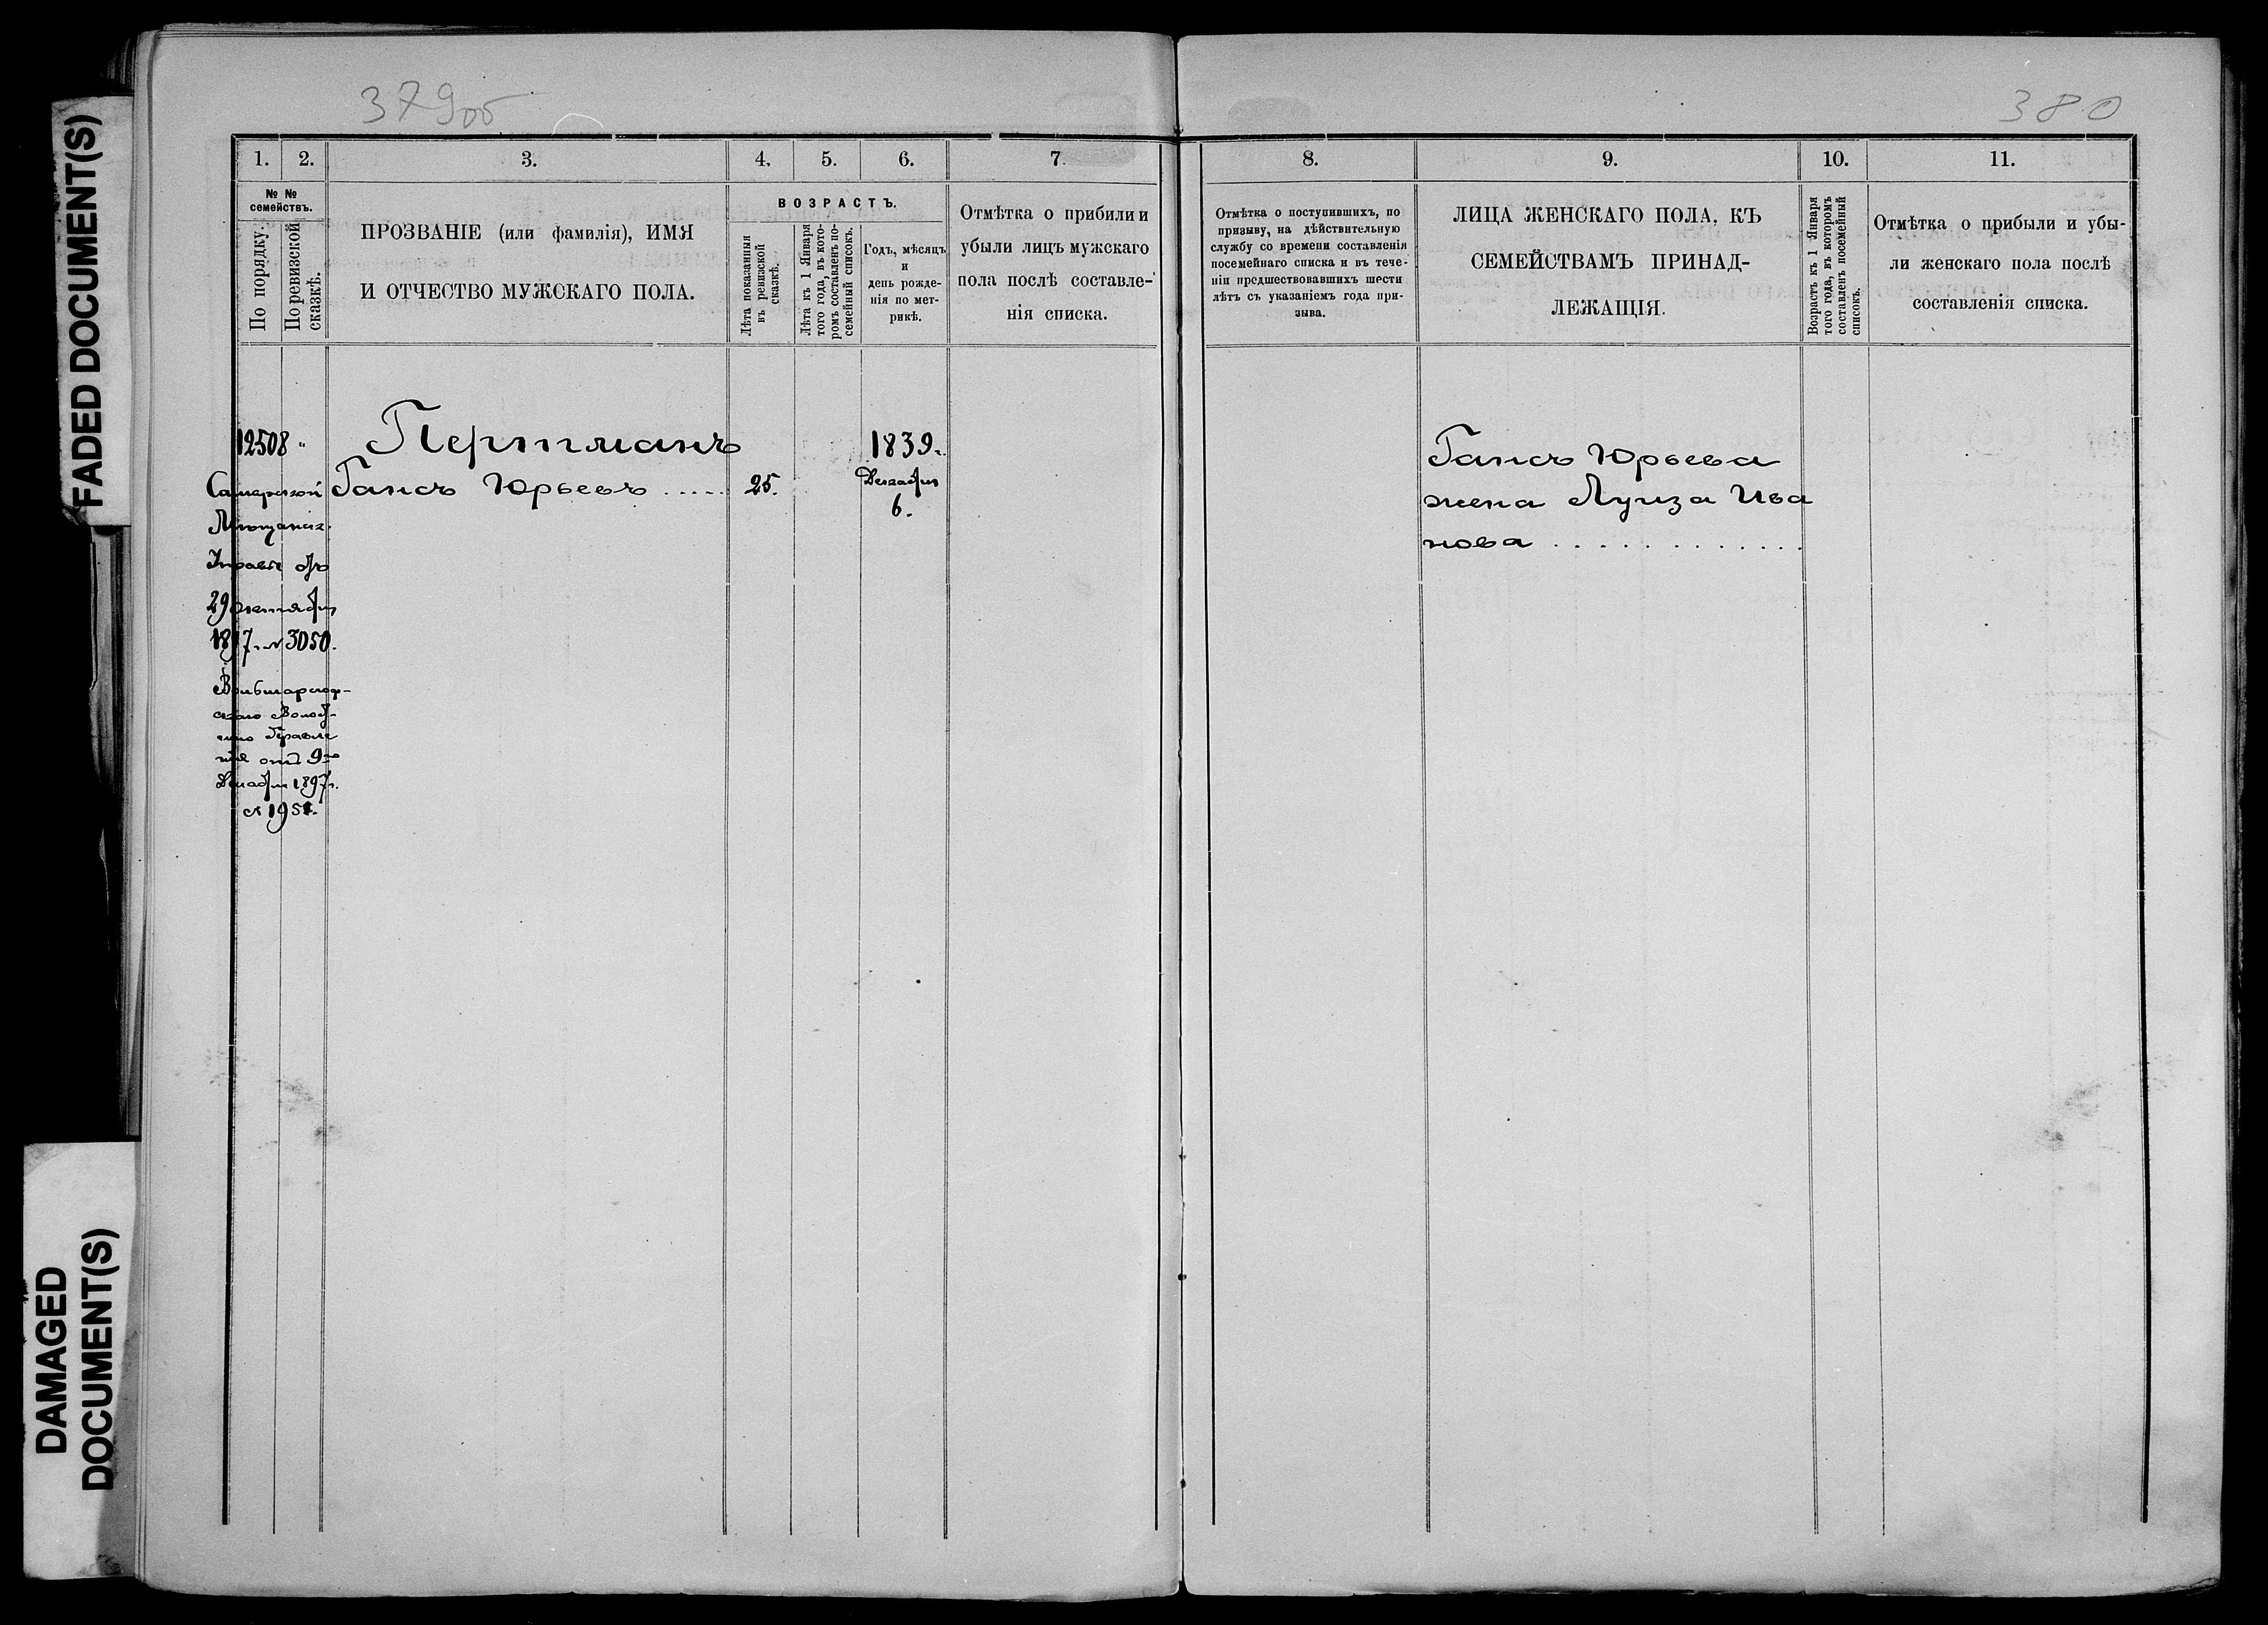 FADED DOCUMENT(S)
DAMAGED
DOCUMENT(S)
379об
380
1.
2.
3.
4.
5.
6.
7.
№ №
семействъ.
По порядку.
По ревизской
сказкѣ.
ПРОЗВАНІЕ (или фамилія), ИМЯ
И ОТЧЕСТВО МУЖСКАГО ПОЛА.
ВОЗРАСТЪ.
Лѣта показанныя
въ ревизской
сказкѣ.
Лѣта къ 1 Января
того года, въ кото-
ромъ составленъ по-
семейный списокъ.
Годъ, мѣсяцъ
и
день рожде-
нія по мет-
рикѣ.
Отмѣтка о прибили и
убыли лицъ мужскаго
пола послѣ составле-
нія списка.
12508 "
Пертманъ
1839г.
Самарской
Гансъ Юрьевъ .....
25.
Декабря
6.
Мѣщанск.
Управы отъ
29 октября
1897г. № 3050.
скаго Волост-
наго Правле
нія отъ 9го
Декабря 1897г.
№ 1951.
8.
9.
10.
11.
Отмѣтка о поступившихъ, по
призыву, на дѣйствительную
службу со времени составленія
посемейнаго списка и въ тече-
ніи предшествовавшихъ шести
лѣтъ съ указаніемъ года при-
зыва.
ЛИЦА ЖЕНСКАГО ПОЛА, КЪ
СЕМЕЙСТВАМЪ ПРИНАД-
ЛЕЖАЩІЯ.
Возрастъ къ 1 Января
того года, въ которомъ
составленъ посемейный
списокъ.
Отмѣтка о прибыли и убы-
ли женскаго пола послѣ
составленія списка.
Гансъ Юрьева
жена Луиза Ива
нова .............